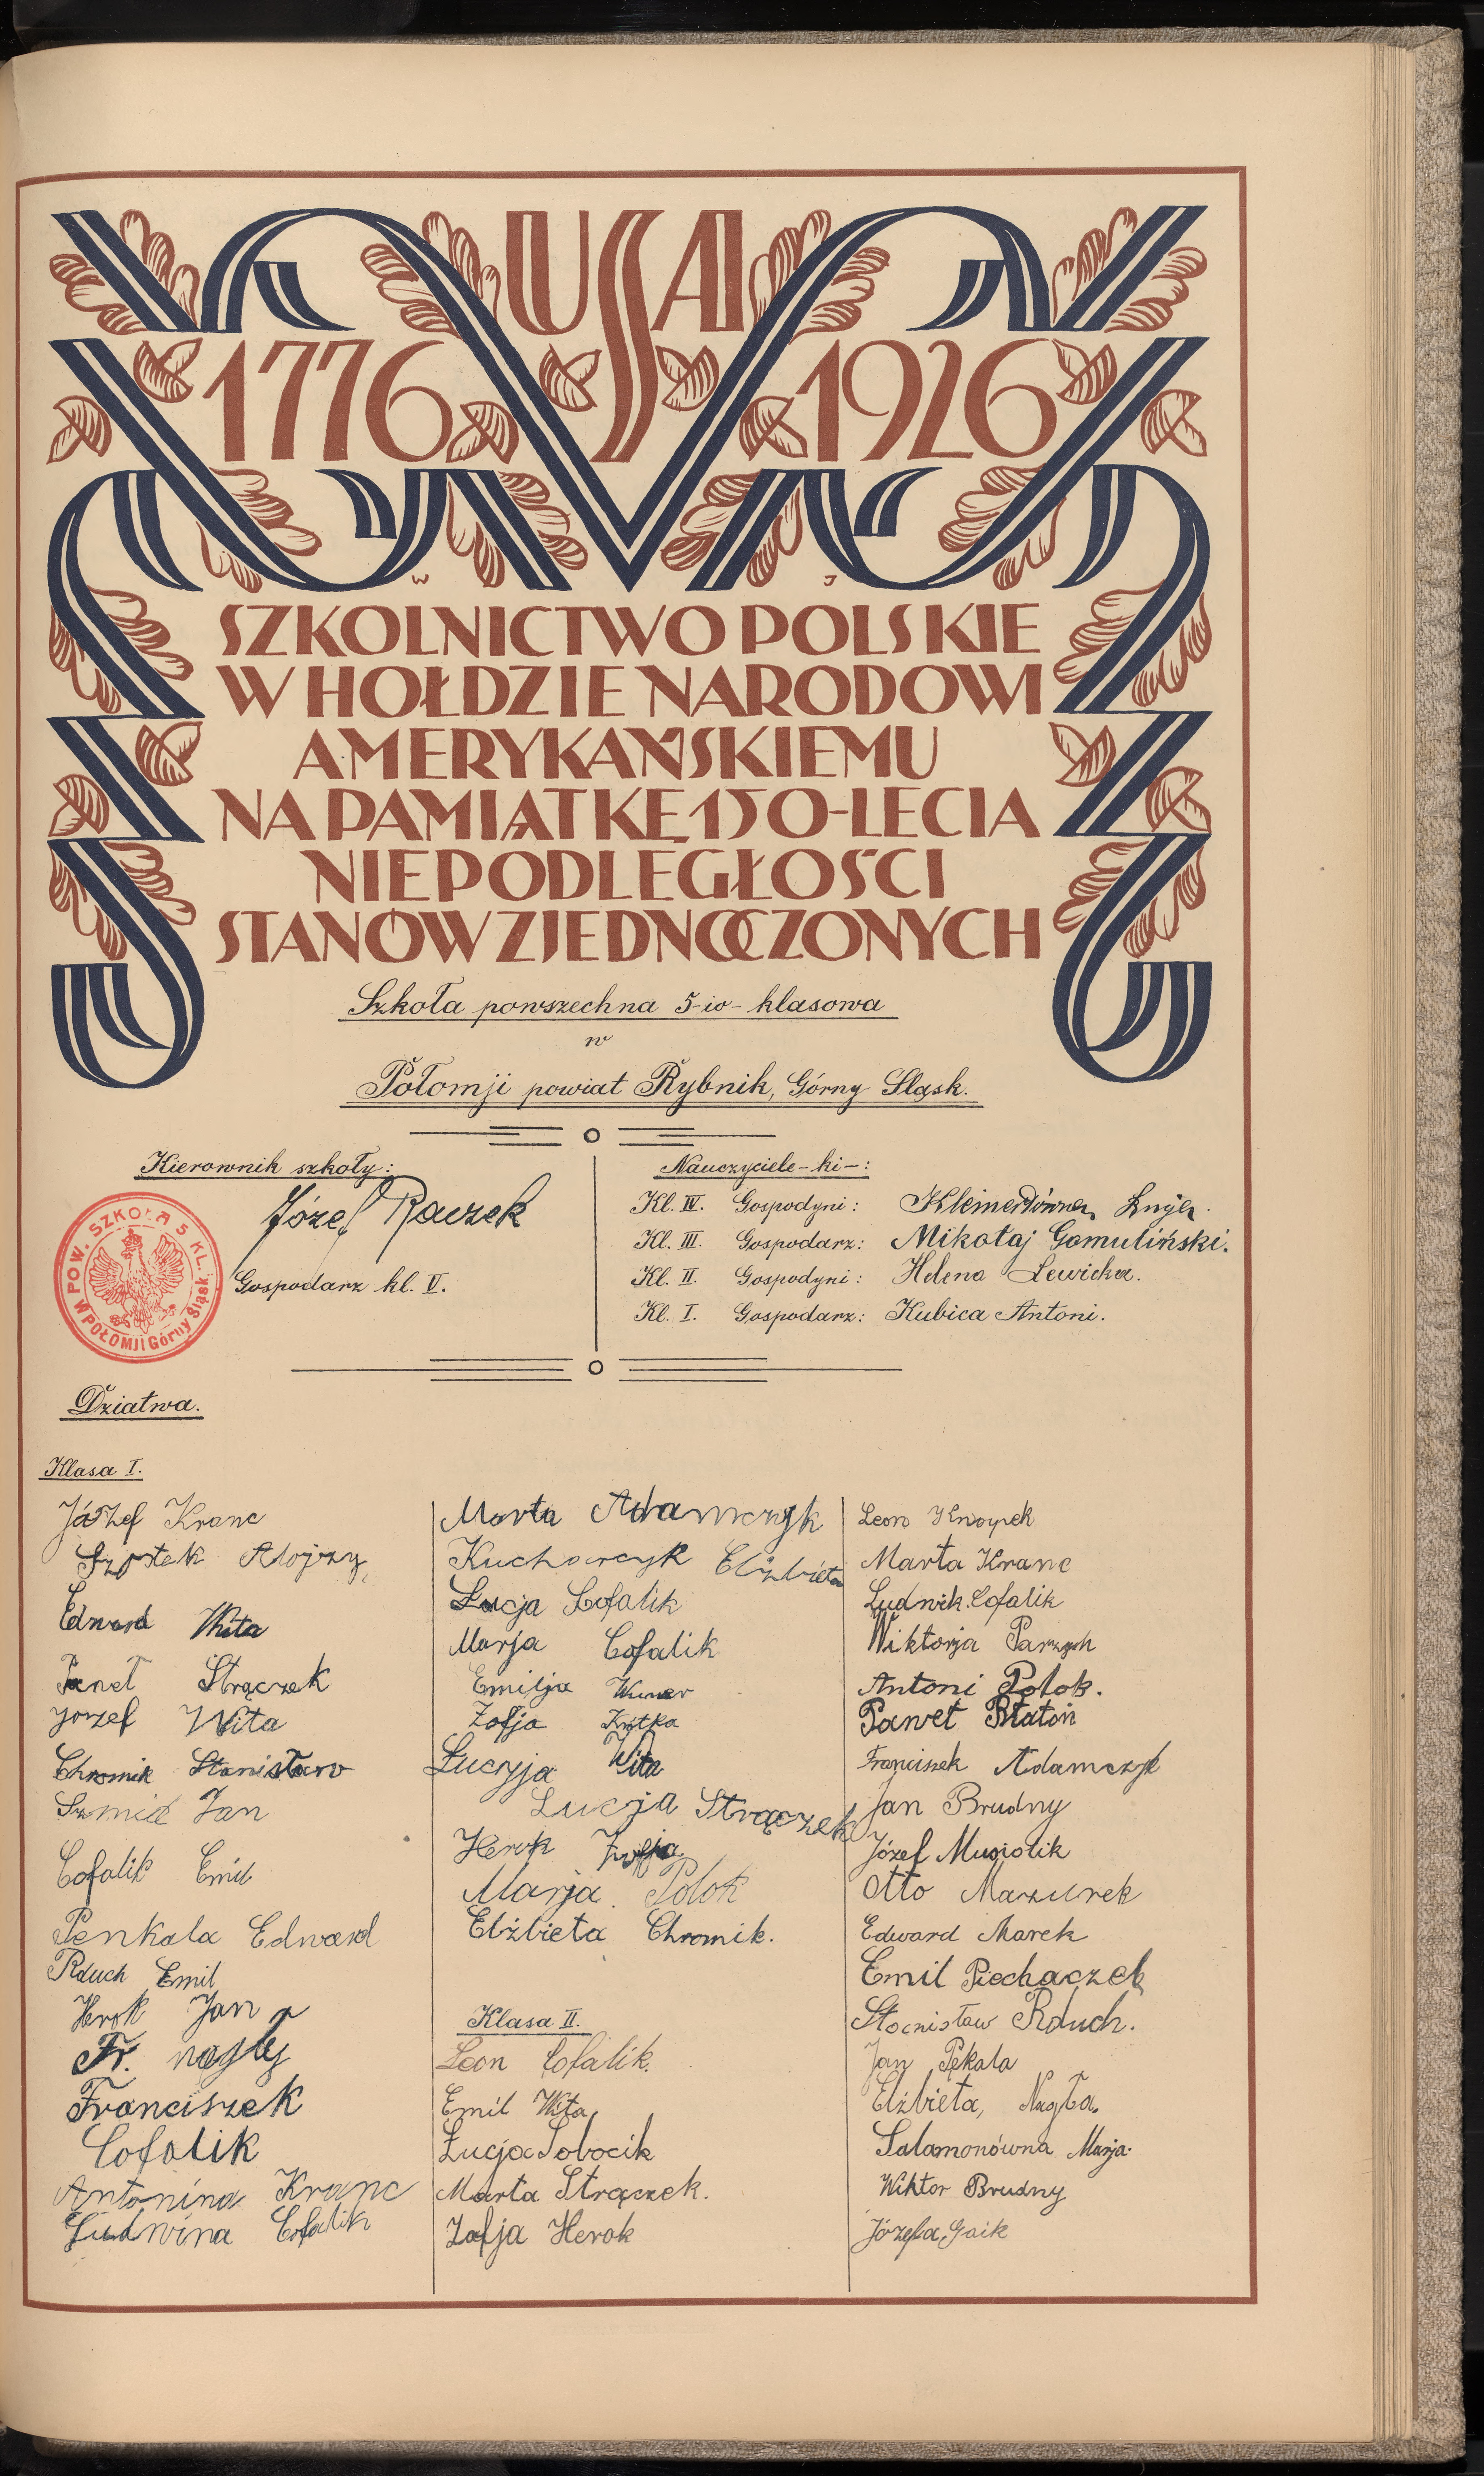 USA
1776 1926
W J
SZKOLNICTWO POLSKIE
W HOŁDZIE NARODOWI
AMERYKAŃSKIEMU
NA PAMIĄTKĘ 150-LECIA
NIEPODLEGŁOŚCI
STANÓW ZJEDNOCZONYCH
Szkoła powszechna 5-io-klasowa
w
Połomji powiat Rybnik, Górny Śląsk.
Kierownik szkoły:
Józef Raczek
Gospodarz kl. V.
POW. SZKOŁA 5 KL.
W POŁOMJI Górny Śląsk
Nauczyciele-ki-:
Kl. IV. Gospodyni:
Kl. III. Gospodarz: Mikołaj Gomuliński.
Kl. II. Gospodyni: Helena Lewicka.
Kl. I. Gospodarz: Kubica Antoni.
Dziatwa.
Klasa I.
Kranc
Alojzy
Edward Wita
Strączek
Józef Wita
Chromik Stanisław
Szmid Jan
Cofalik Emil
Penkala Edward
Rduch Emil
Herok Jan
Fr. nagły
Franciszek
Cofalik
Antonina Kranc
Ludwina Cofalik
Marta Adamczyk
Kucharcyk Elżbieta
Łucja Cofalik
Marja Cofalik
Emilja
Zofja
Łucyja Wita
Łucja Strączek
Herok Zofja
Marja Polok
Elżbieta Chromik.
Klasa II.
Leon Cofalik.
Emil Wita
Łucja Sobocik
Marta Strączek.
Zofja Herok
Leon Knopek
Marta Kranc
Ludwik Cofalik
Wiktorja
Antoni Polok.
Paweł
Franciszek Adamczyk
Jan Brudny
Józef Musiolik
Otto Mazurek
Edward Marek
Emil Piechaczek
Stanisław Rduch.
Jan Pękala
Elżbieta, Nagła.
Salamonówna Marja.
Wiktor Brudny
Józefa Gaik